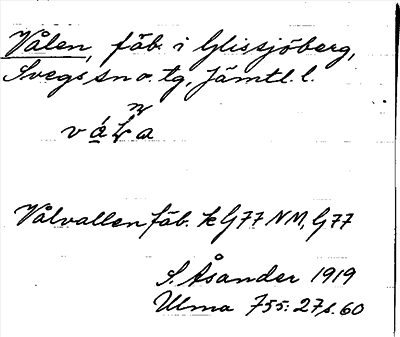 Vålen, fäb. i Glissjöberg,
Svegs sn o. tg, Jämtl. l.
Vålvallen fäb. k G77 NM, G77
S. Åsander 1919
Ulma 755: 27 s. 60